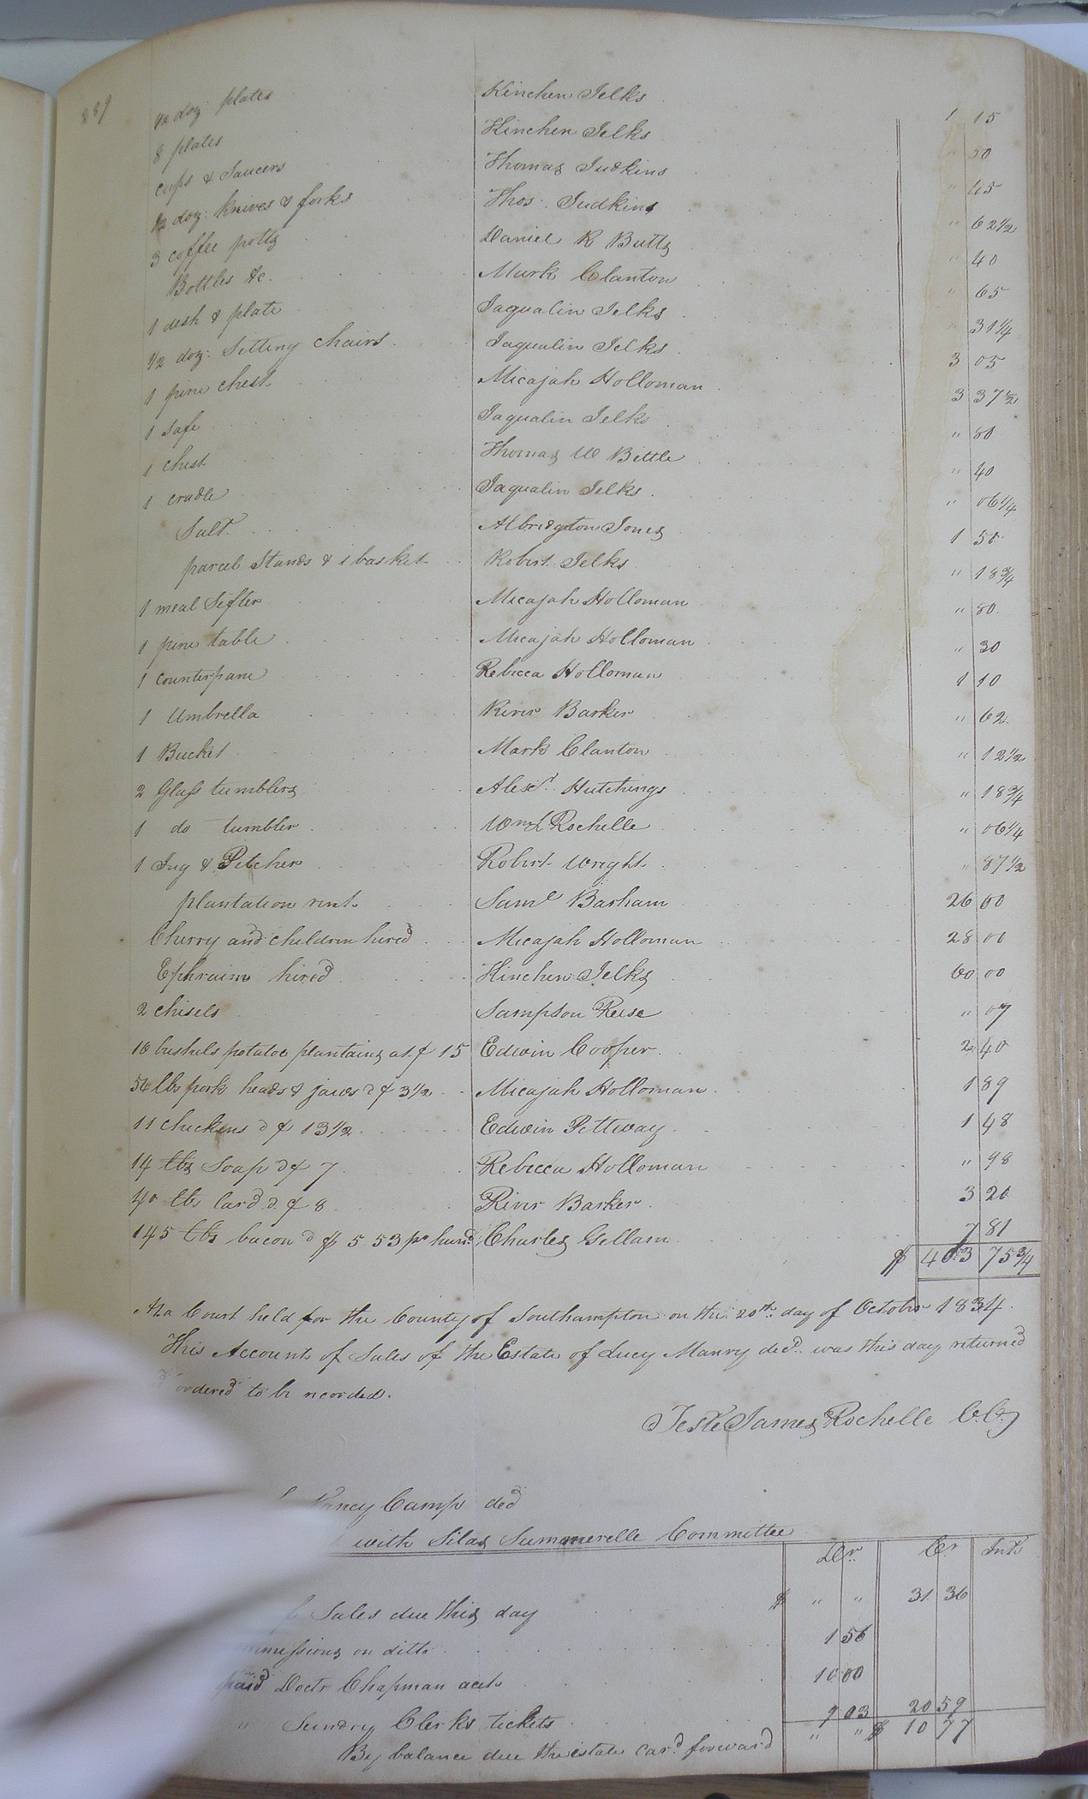 ½ doz: plates Kinchen Jelks 1 15
8 plates Kinchen Jelks " 50
cups & Saucers Thomas Judkins " 65
½ doz: knives & forks Thos. Judkins " 62½
3 coffee potts Daniel R Butts " 40
Bottles &c. Mark Clanton " 65
1 desh & plate Jaqualin Jelks " 31¼
½ doz: Setting chairs Jaqualin Jelks 3 05
1 pine chest Micajah Holloman 3 37½
1 Safe Jaqualin Jelks " 80
1 chest Thomas W Bittle " 40
1 cradle Jaqualin Jelks " 06¼
Salt Albridgton Jones 1 50
parcel Stands & 1 basket Robert Jelks " 18¾
1 meal Sifter Micajah Holloman " 80
1 pine table Micajah Holloman " 30
1 counterpane Rebecca Holloman 1 10
1 Umbrella River Barker " 62
1 Bucket Mark Clanton " 12½
2 Glass tumblers Alexr. Hutchings " 18¾
1 do tumbler Wm L Rochelle " 06¼
1 Jug & Pitcher Robert Wright " 87½
plantation rent Saml Barham 26 00
Cherry and children hired Micajah Holloman 28 00
Ephraim hired Kinchen Jelks 60 00
2 chisels Sampson Reese " 07
16 bushels potatoe plantains at ₵ 15 Edwin Cooper 2 40
54 lbs pork heads & jaws @ ₵ 3½ Micajah Holloman 1 89
11 chickens @ ₵ 13½ Edwin Pittway 1 48
14 lbs Soap @ ₵ 7 Rebecca Holloman " 98
40 lbs Lard @ ₵ 8 River Barker 3 20
145 lbs bacon @ $ 5 53 pr hund. Charles Gillam 7 81
$ 403 75¾
At a Court held for the County of Southampton on the 20th. day of October 1834.
This Account of Sales of the Estate of Lucy Manry decd. was this day returned
ordered to be recorded.
Teste James Rochelle C.C.
Nancy Camp decd
with Silas Summerelle Committee
Dr. Cr Int.
Sales due this day $ " " 31 36
on ditto 1 56
paid Doctr Chapman acct 10 00
" Sundry Clerks tickets 9 03 20 59
By balance due the estate card. forward " " $ 10 77